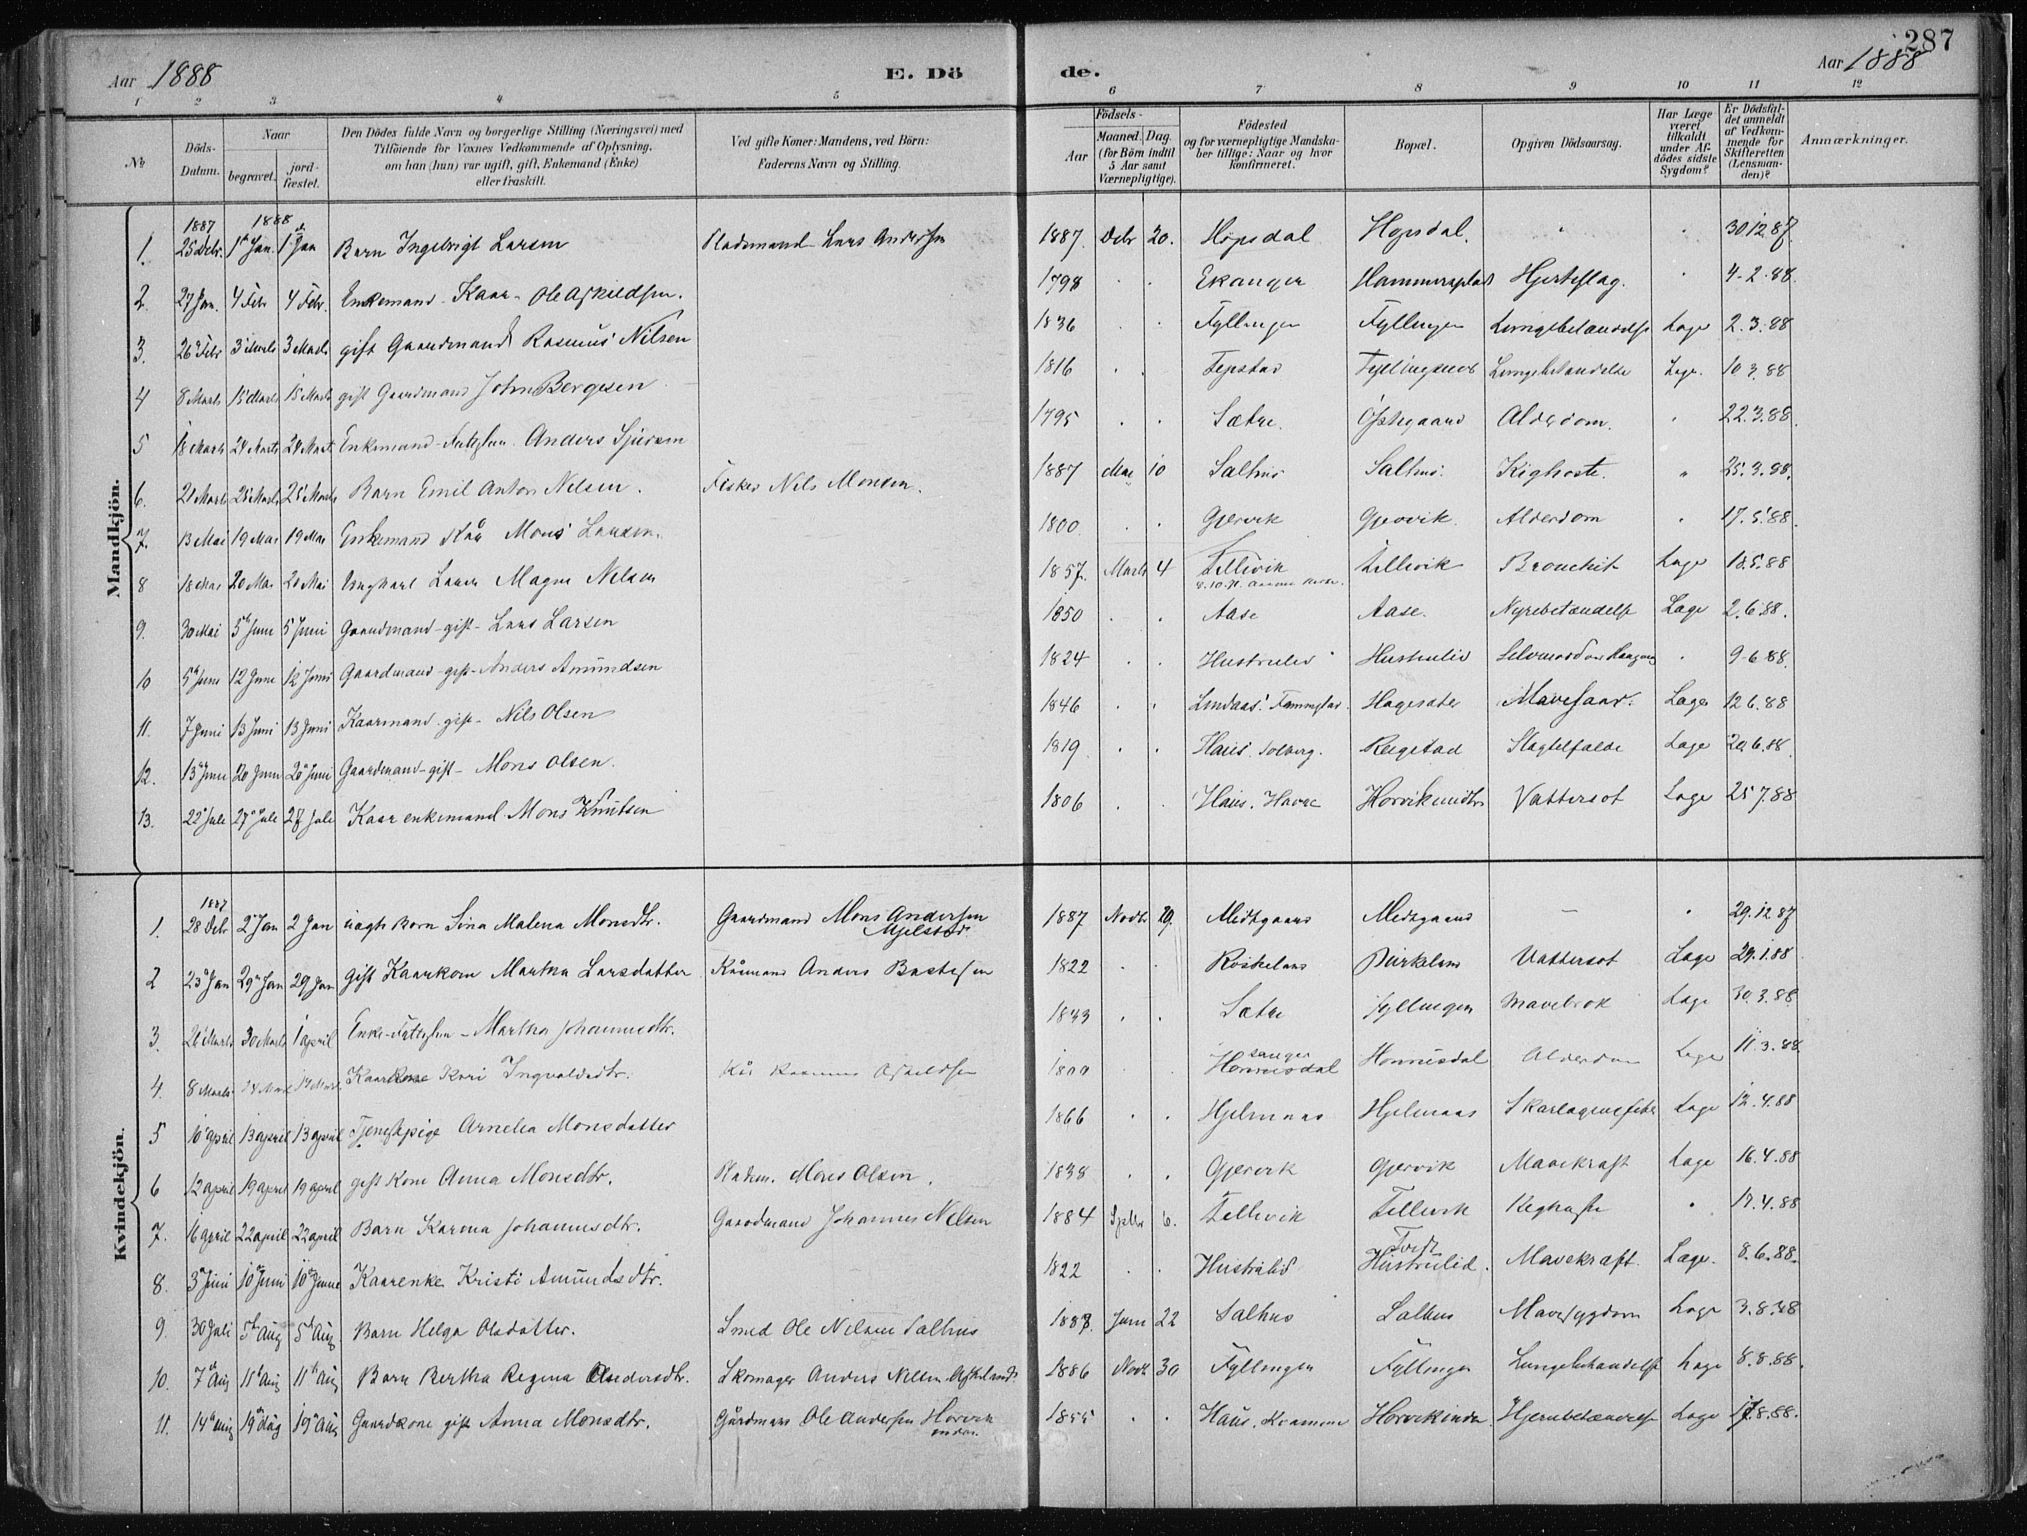 287
Aar 1888
E. Dö
de.
Aar 1888
1 2 3 4 5 6 7 8 9 10 11 12
№
Döds-Datum.
Naar
begravet.
jord-fæstet.
Den Dödes fulde Navn og borgerlige Stilling (Næringsvei) med
Tilföiende for Voxnes Vedkommende af Oplysning,
om han (hun) var ugift, gift, Enkemand (Enke)
eller fraskilt.
Ved gifte Koner: Mandens, ved Börn:
Faderens Navn og Stilling.
Födsels-
Aar
Maaned. Dag.
(for Börn indtil
5 Aar samt
Værnepligtige).
Födested
og for værnepligtige Mandska-
ber tillige: Naar og hvor
konfirmeret.
Bopæl.
Opgiven Dödsaarsag.
Har Læge
været
tilkaldt
under Af-
dödes sidste
Sygdom?
Er Dödsfal-
det anmeldt
af Vedkom-
mende for
Skifteretten
(Lensman-
den)?
Anmærkninger.
Mandkjön.
1887 1888
1. 25 Debr. 1 Jan. 1 Jan Barn Ingebrigt Larsen Pladsmand Lars Andersen 1887. Debr 20. Hopsdal Hopsdal. " " 30.12.87.
2. 27 Jan. 4 Febr 4 Febr. Enkemand Kaar- Ole Askildsen. 1798 Ekanger Hammersplads Hjerteslag. 4-2-88.
3. 26 Febr 3 Marts 3 Marts gift Gaardmand Rasmus Nilsen 1836 Fyllingen Fyllingen Lungebetændelse Læge 2.3.88
4 8 Marts 15 Marts 15 Marts gift Gaardmand John Bergesen 1816 Lungebetændelse Læge. 10 3.88
5 18 Marts 24 Marts 24 Marts Enkemand Anders Sjursen 1795 Sætre. Østegaard Alderdom. 22.3.88.
6. 21 Marts 25 Marts 25 Marts Barn Emil Anton Nilsen. Fisker Nils Monsen. 1887 Mai 10 Salhus Salhus. Kighoste. " 25.3.88.
7. 13 Mai 19 Mai 19 Mai Enkemand Kår Mons Larsen. 1800 Gjervik Gjervik. Alderdom 17.5.88.
8 18 Mai 20 Mai Ungkarl Magne Nilsen 1857. Marts 4 Tellevik Tellevik Bronchit Læge 18.5.88
9. 30 Mai 5 Juni 5 Juni Gaardmand-gift- Lars Larsen 1850 Aase Aase. Nyrebetændelse Læge 2.6.88.
10 5 Juni 12 Juni 12 Juni Gaardmand-gift-Anders Amundsen 1824 Hustrulid Hustrulid 9-6.88.
11. 7 Juni 13 Juni 13 Juni Kaarmand. gift- Nils Olsen 1846 Lindaas. Hagesæter Mavesaar. Læge 12 6.88
12. 13 Juni 20 Juni 20 Juni Gaardmand-gift- Mons Olsen. 1819 Haus. Solberg. Slagtilfælde Læge 20.6.88.
13. 22 Juli 27 Juli 27 Juli Kaar enkemand Mons Knutsen 1806 Haus. Horvikinden Vattersot Læge 25 7.88
Kvindekjön.
1887
1. 28 Debr 2 Jan 2 Jan uægte Barn Sina Malena Monsdtr. Gaardmand Mons Andersen
Mjelstad. 1887 Novbr 29. Midtgaard Midtgaard — 29.12.87
2 23 Jan 29 Jan 29 Jan gift Kaarkone Martha Larsdatter Kårmand Anders 1822 Røskeland Birkeland Vattersot Læge 29.1.88
3. 26 Marts 30 Marts 1 april Enke- Martha Johannesdtr. Sætre Fyllingen Mavebrok Læge 30.3.88
4. 8 Marts Kaarkone Kari Ingvaldsdtr. Kår Rasmus Askildsen Hopsdal Alderdom Læge 11.3.88.
5 10 april 13 april 13 april Tjenestpige Arnelia Monsdatter 1866 Hjelmaas Hjelmaas Skarlagensfeber Læge 12.4.88
6 12 april 19 april 19 april gift Kone Anna Monsdtr. Pladsm. Mons Olsen. 1838 Gjervik Gjervik Mavekræft Læge 16.4.88
7. 16 april 22 april 22 april Barn Karina Johannesdtr. Gaardmand Johannes Nilsen 1884 Septbr 6. Tellevik Tellevik Kighoste 17.4.88
8. 3 Juni 10 Juni 10 Juni Kaarenke Kristi Amundsdtr. 1822 Hustrulid Tvedt
Hustrulid. Mavekræft. Læge. 8.6.88.
9. 30 Juli 5 Aug 5 Aug Barn Helga Olsdatter. Smed Ole Nilsen Salhus Juni 22 Salhus Salhus Mavesygdom Læge 3.8.88
10. 7 Aug 11 Aug 11 Aug Barn Bertha Regina Andersdtr. Skomager Anders Nilsen 1886 Novbr 30 Fyllingen Fyllingen Lungebetændelse Læge 8.8.88.
11. 14 Aug 19 Aug 19 Aug Gaardkone gift Anna Monsdtr. Gårdmand Ole Andersen Horvik
inden. 1855 Haus. Horvikinden Hjernebetændelse Læge 17.8.88.